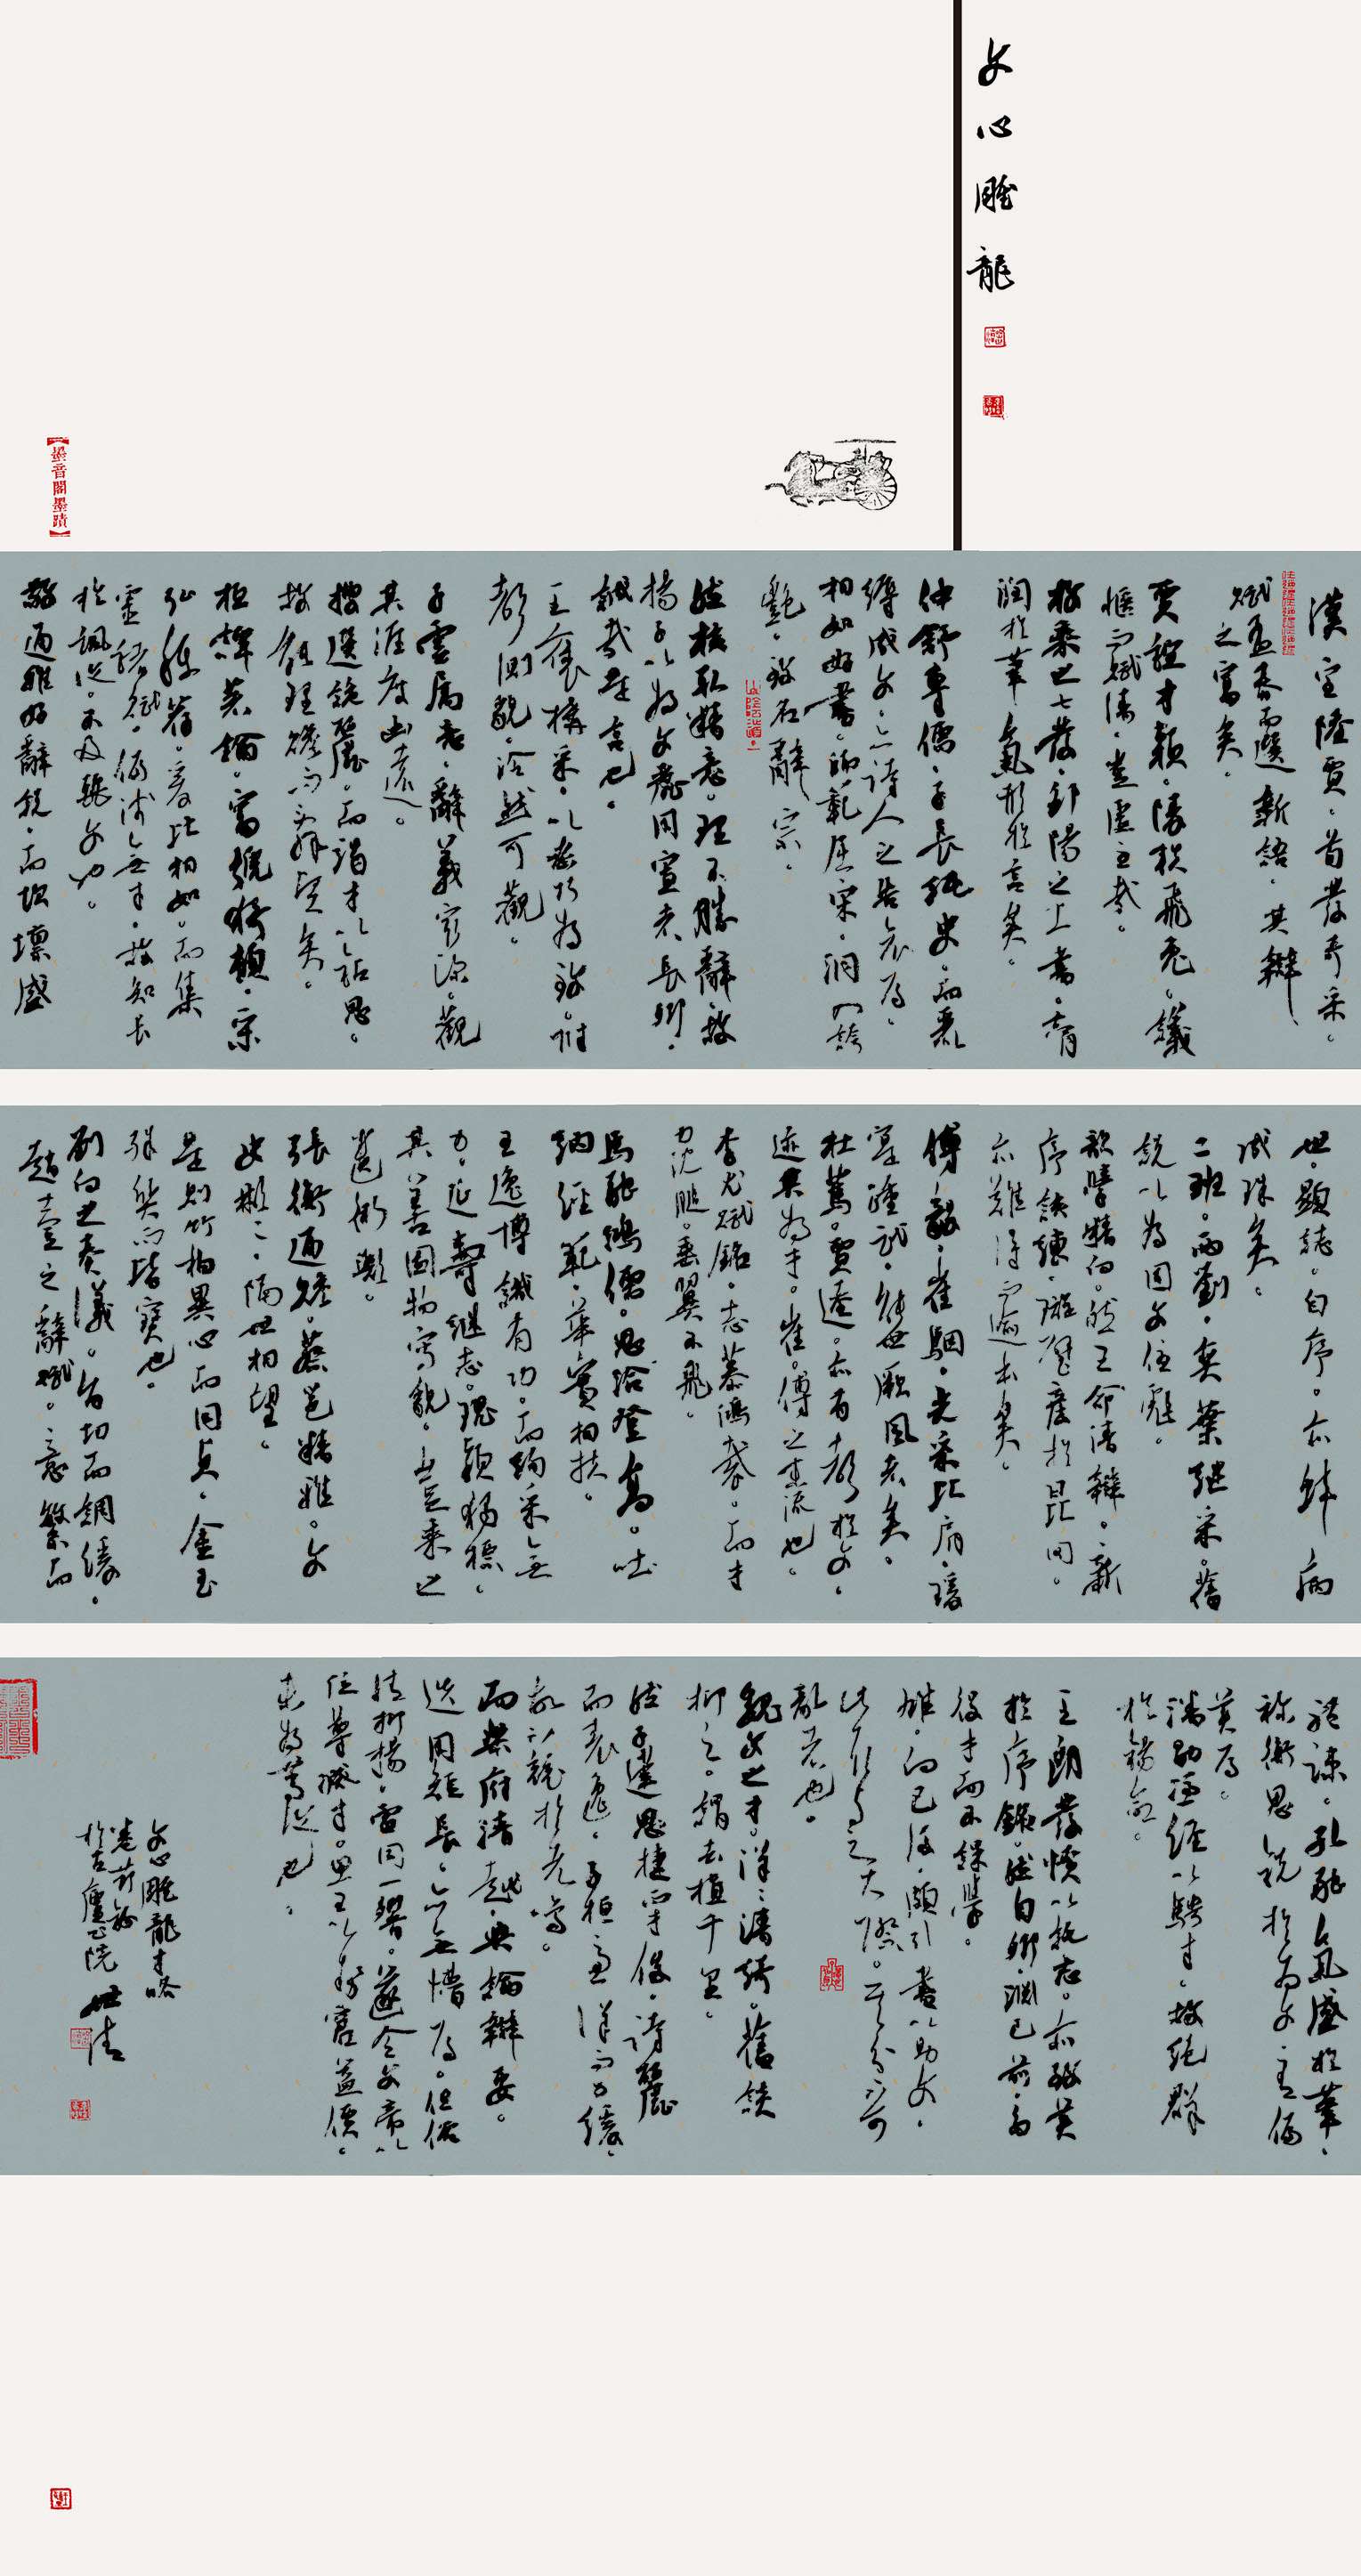 文心雕龍
【墨音閣墨蹟】
漢室陸賈。首發奇采。
賦孟春而選新語。其辯
之富矣。
賈誼才穎。陵軼飛兔。議
愜而賦清。豈虛至哉。
枚乘之七發。鄒陽之上書。膏
潤於筆。氣形於言矣。
仲舒專儒。子長純史。而麗
縟成文。亦詩人之告哀焉。
相如好書。師範屈宋。洞入誇
艷。致名辭宗。
然核取精意。理不勝辭。故
揚子以為文麗用寡者長卿。
誠哉是言也。
王褒構采。以密巧為致。附
聲測貌。泠然可觀。
子雲屬意。辭義最深。觀
其涯度幽遠。
搜選詭麗。而竭才以鑽思。
故能理贍而辭堅矣。
桓譚著論。富號猗頓。宋
弘稱薦。爰比相如。而集
靈諸賦。偏淺無才。故知長
於諷諭。不及麗文也。
敬通雅好辭說。而坎壈盛
世。顯志自序。亦蚌病
成珠矣。
二班。兩劉。奕葉繼采。舊
說以為固文優彪。
歆學精向。然王命清辯。新
序該練。璿璧產於崑岡。
亦難得而逾本矣。
傅毅。崔駰。光采比肩。瑗
寔踵武。能世厥風者矣。
杜篤。賈逵。亦有聲於文。
跡其為才。崔。傅之末流也。
李尤賦銘。志慕鴻裁。而才
力沈膇。垂翼不飛。
馬融鴻儒。思洽登高。吐
納經範。華實相扶。
王逸博識有功。而絢采無
力。延壽繼志。瑰穎獨標。
其善圖物寫貌。豈乘之
遺術歟。
張衡通贍。蔡邕精雅。文
史彬彬。隔世相望。
是則竹柏異心而同貞。金玉
殊質而皆寶也。
劉向之奏議。旨切而調緩。
趙壹之辭賦。意繁而
體疏。孔融氣盛於筆。
禰衡思銳於為文。有偏
美焉。
潘勖憑經以騁才。故絕群
於錫命。
王朗發憤以託志。亦致美
於序銘。然自卿淵已前。多
役才而不課學。
雄。向已後。頗引書以助文。
此取與之大際。其分不可
亂者也。
魏文之才。洋洋清綺。舊談
抑之。謂去植千里。
然子建思捷而才俊。詩麗
而表逸。子桓慮詳而力緩。
故不競於先鳴。
而樂府清越。典論辯要。
迭用短長。亦無懵焉。但俗
情抑揚。雷同一響。遂令文帝以
位尊減才。思王以勢窘益價。
未為篤論也。
文心雕龍才略